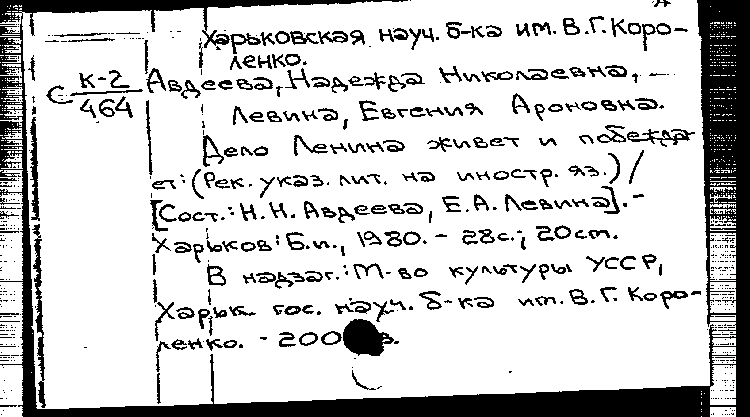 Харьковская науч. б-ка им. В.Г. Коро-
ленко.
С К-2
464
Авдеева, Надежда Николаевна,
Левина, Евгения Ароновна.
Дело Ленина живет и побежда
ет: (Рек. указ. лит. на иностр. яз.) /
[Сост.: Н.Н. Авдеева, Е.А. Левина]. -
Харьков: Б.и., 1980. - 28с.; 20см.
В надзаг.: М-во культуры УССР,
Харьк. гос. науч. б-ка им. В.Г. Коро-
ленко. - 200